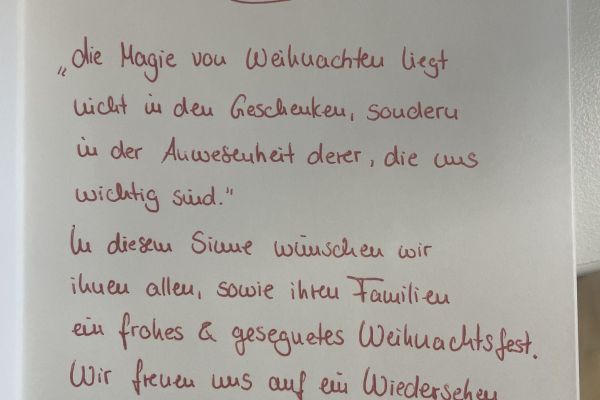 „die Magie von Weihnachten liegt
nicht in den Geschenken, sondern
in der Anwesenheit derer, die uns
wichtig sind."
In diesem Sinne wünschen wir
ihnen allen, sowie ihren Familien
ein frohes & gesegnetes Weihnachtsfest.
Wir freuen uns auf ein Wiedersehen